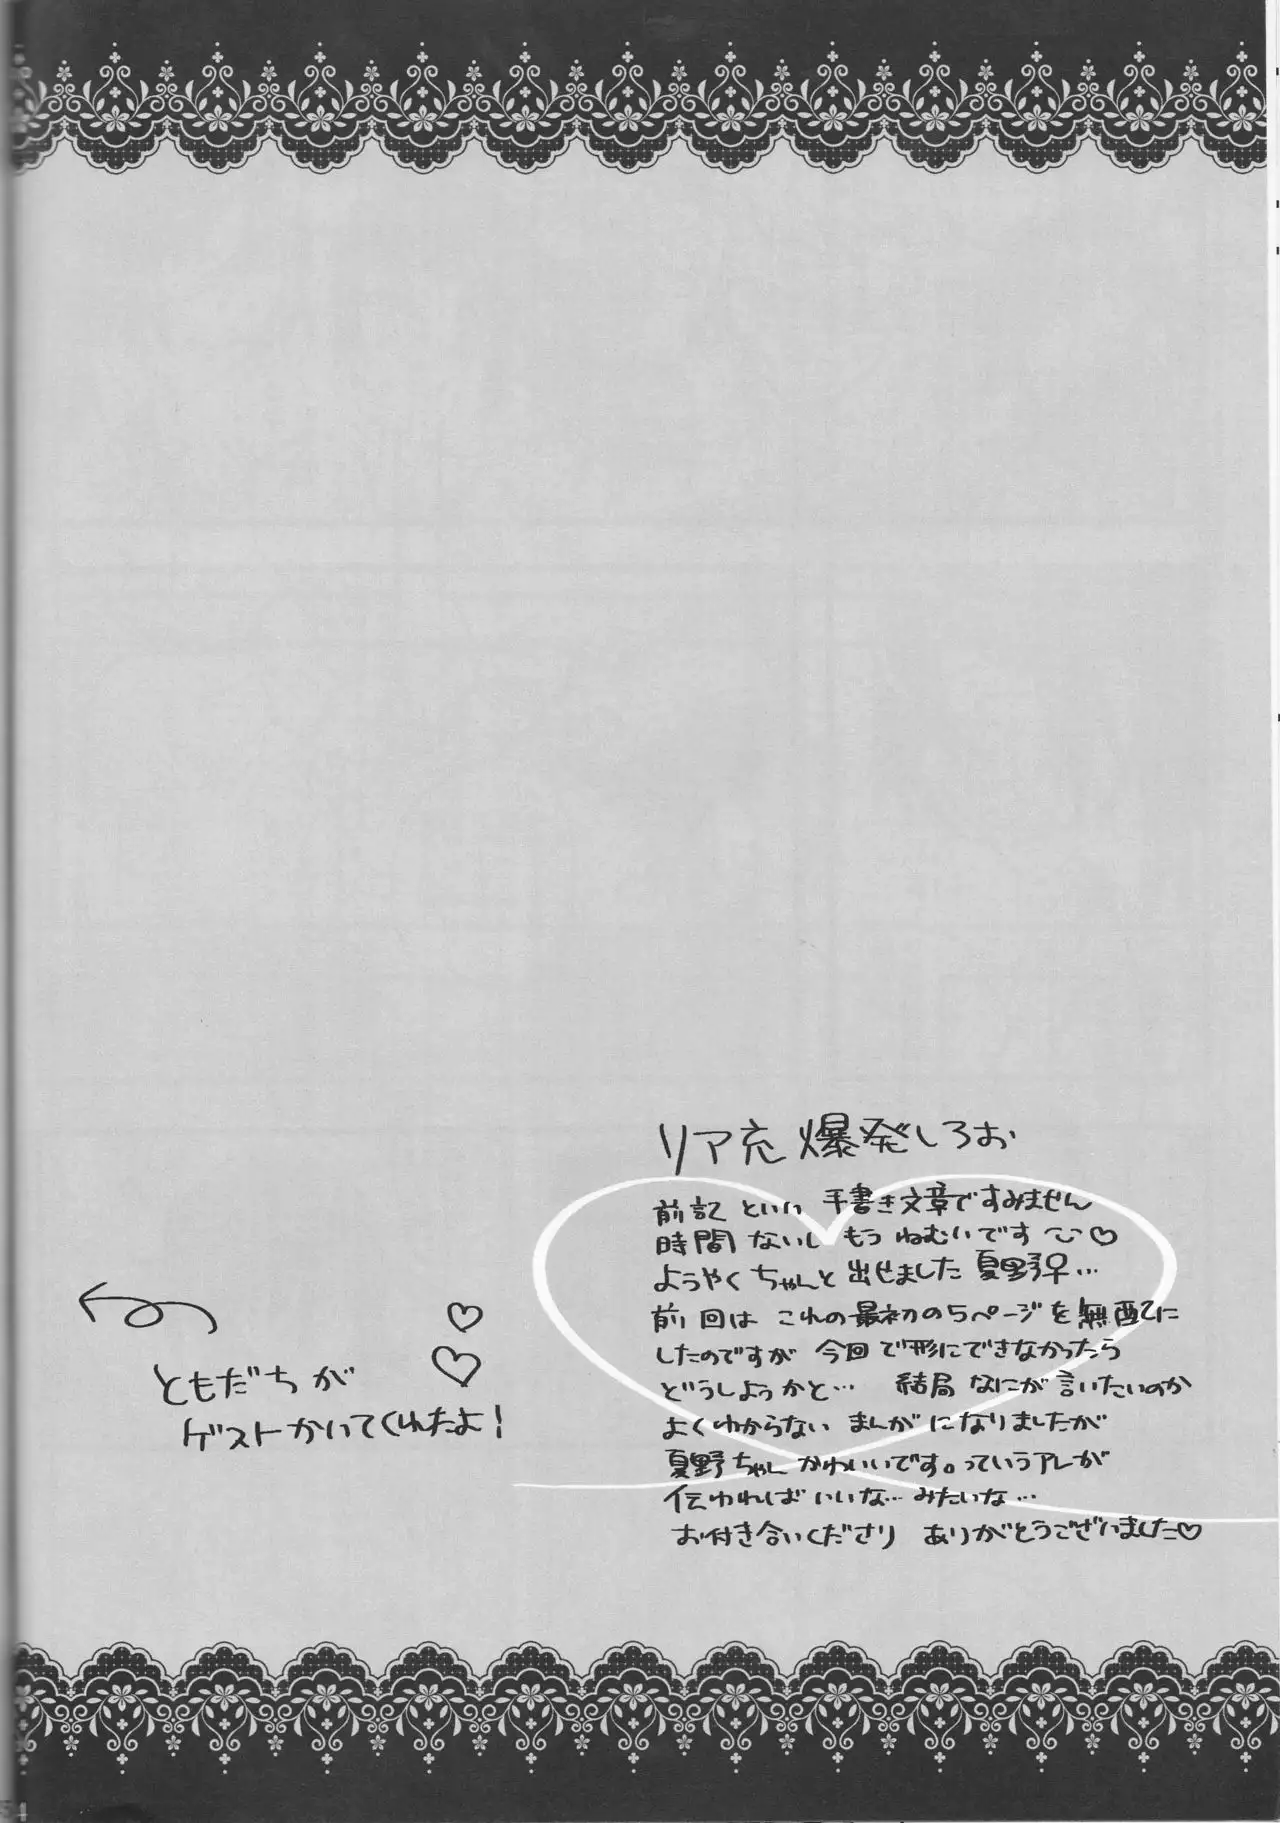 リア充 爆発しろお
前記といい 手書き文章ですみません
時間ないし もうねむいです ♡
ようやくちゃんと出せました夏野♀…
前回は これの最初の5ページを無配に
したのですが 今回で形にできなかったら
どうしようかと… 結局 なにが言いたいのか
よくわからない まんがになりましたが
夏野ちゃん かわいいです。っていうアレが
伝わればいいな… みたいな…
お付き合いくださり ありがとうございました♡
ともだちが
ゲストかいてくれたよ!
54